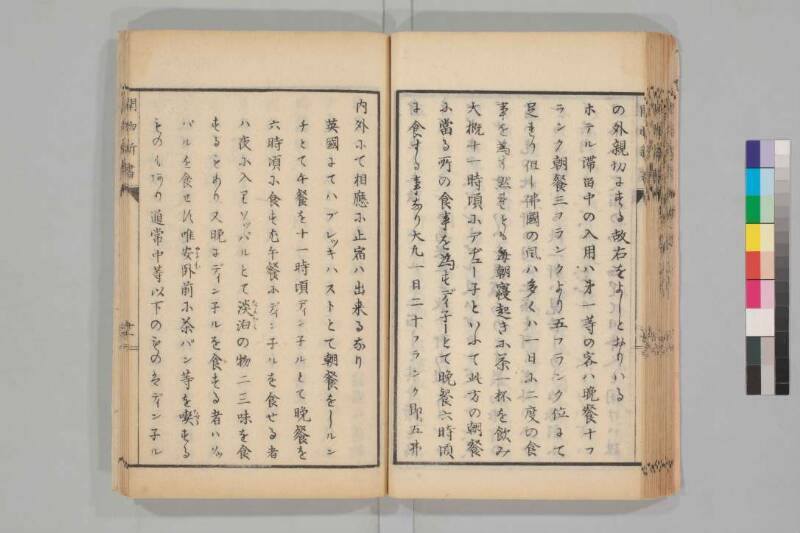 の外親切にする故右をよしとおりいる
ホテル滞留中の入用ハ才一等の客ハ晩餐十フ
ランク朝餐三ヨランクより五フランク位にて
足まり但し佛國の風ハ多くハ一日に二度の食
事を為す然をとる毎朝寝起きに茶一杯を飲み
大概十一時頃にアヂュー子といふて此方の朝餐
に當る所の食事を為すヂィ子ーとて晩餐六時頃
に食する事なり大凢一日二十フランク即五弗
内外にて相應に止宿ハ出来るなり
英國にてハブレッキハストとて朝餐をしルン
チとて午餐を十一時頃ディン子ルとて晩餐を
六時頃に食す尤午餐にディン子ルを食せる者
ハ夜に入りソッパルとて淡泊の物二三味を食
するをあり又晩にディン子ルを食する者ハソッ
パルを食せ唯安卧前に茶パン等を喫する
ものもあり通常中等以下のものをディン子ル
開物新書